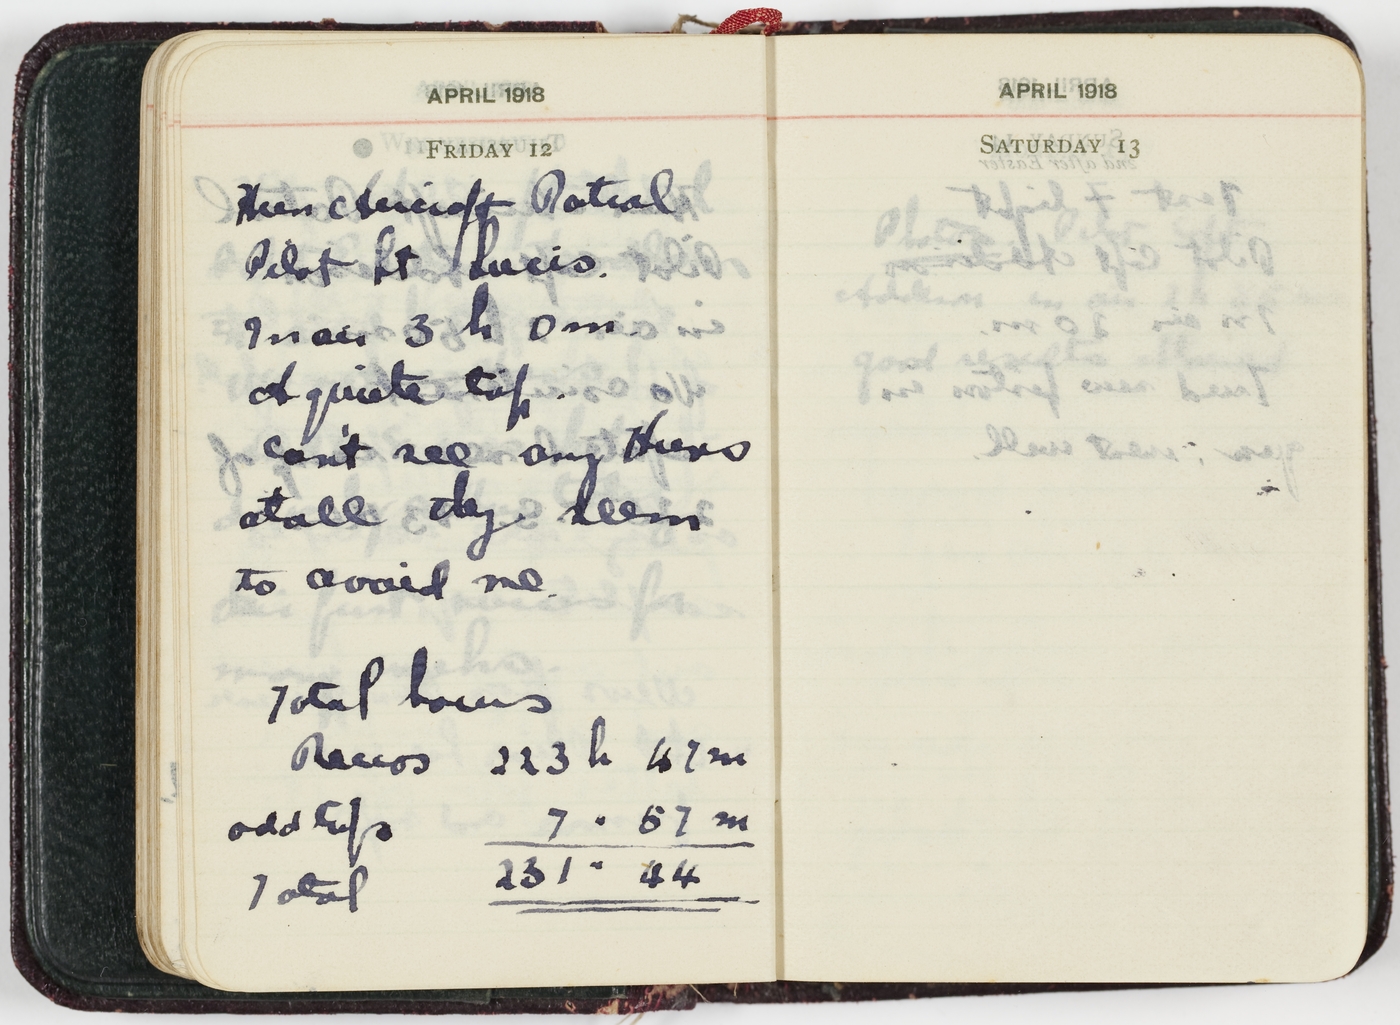 APRIL 1918
FRIDAY 12
Hun Aircraft Patrol
Pilot Lt Lucis.
In air 3 h 0 m.
A quiete tip.
Can't see any Huns
atall they seem
to avoid me.
Total hours
Recos 223 h 47 m
odd tips 7 " 57 m
Total 231 " 44
APRIL 1918
SATURDAY 13